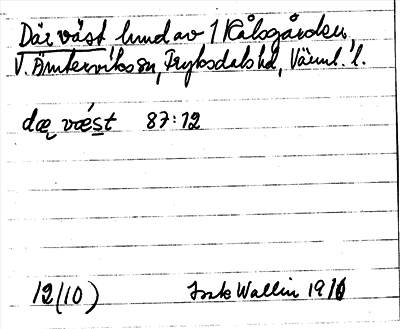 Där väst hund av 1 Kålsgården,
V. Ämterviks sn, Fryksdals hd, Värml. l.
dæ væst 87:12
12(10) Wallin 1916